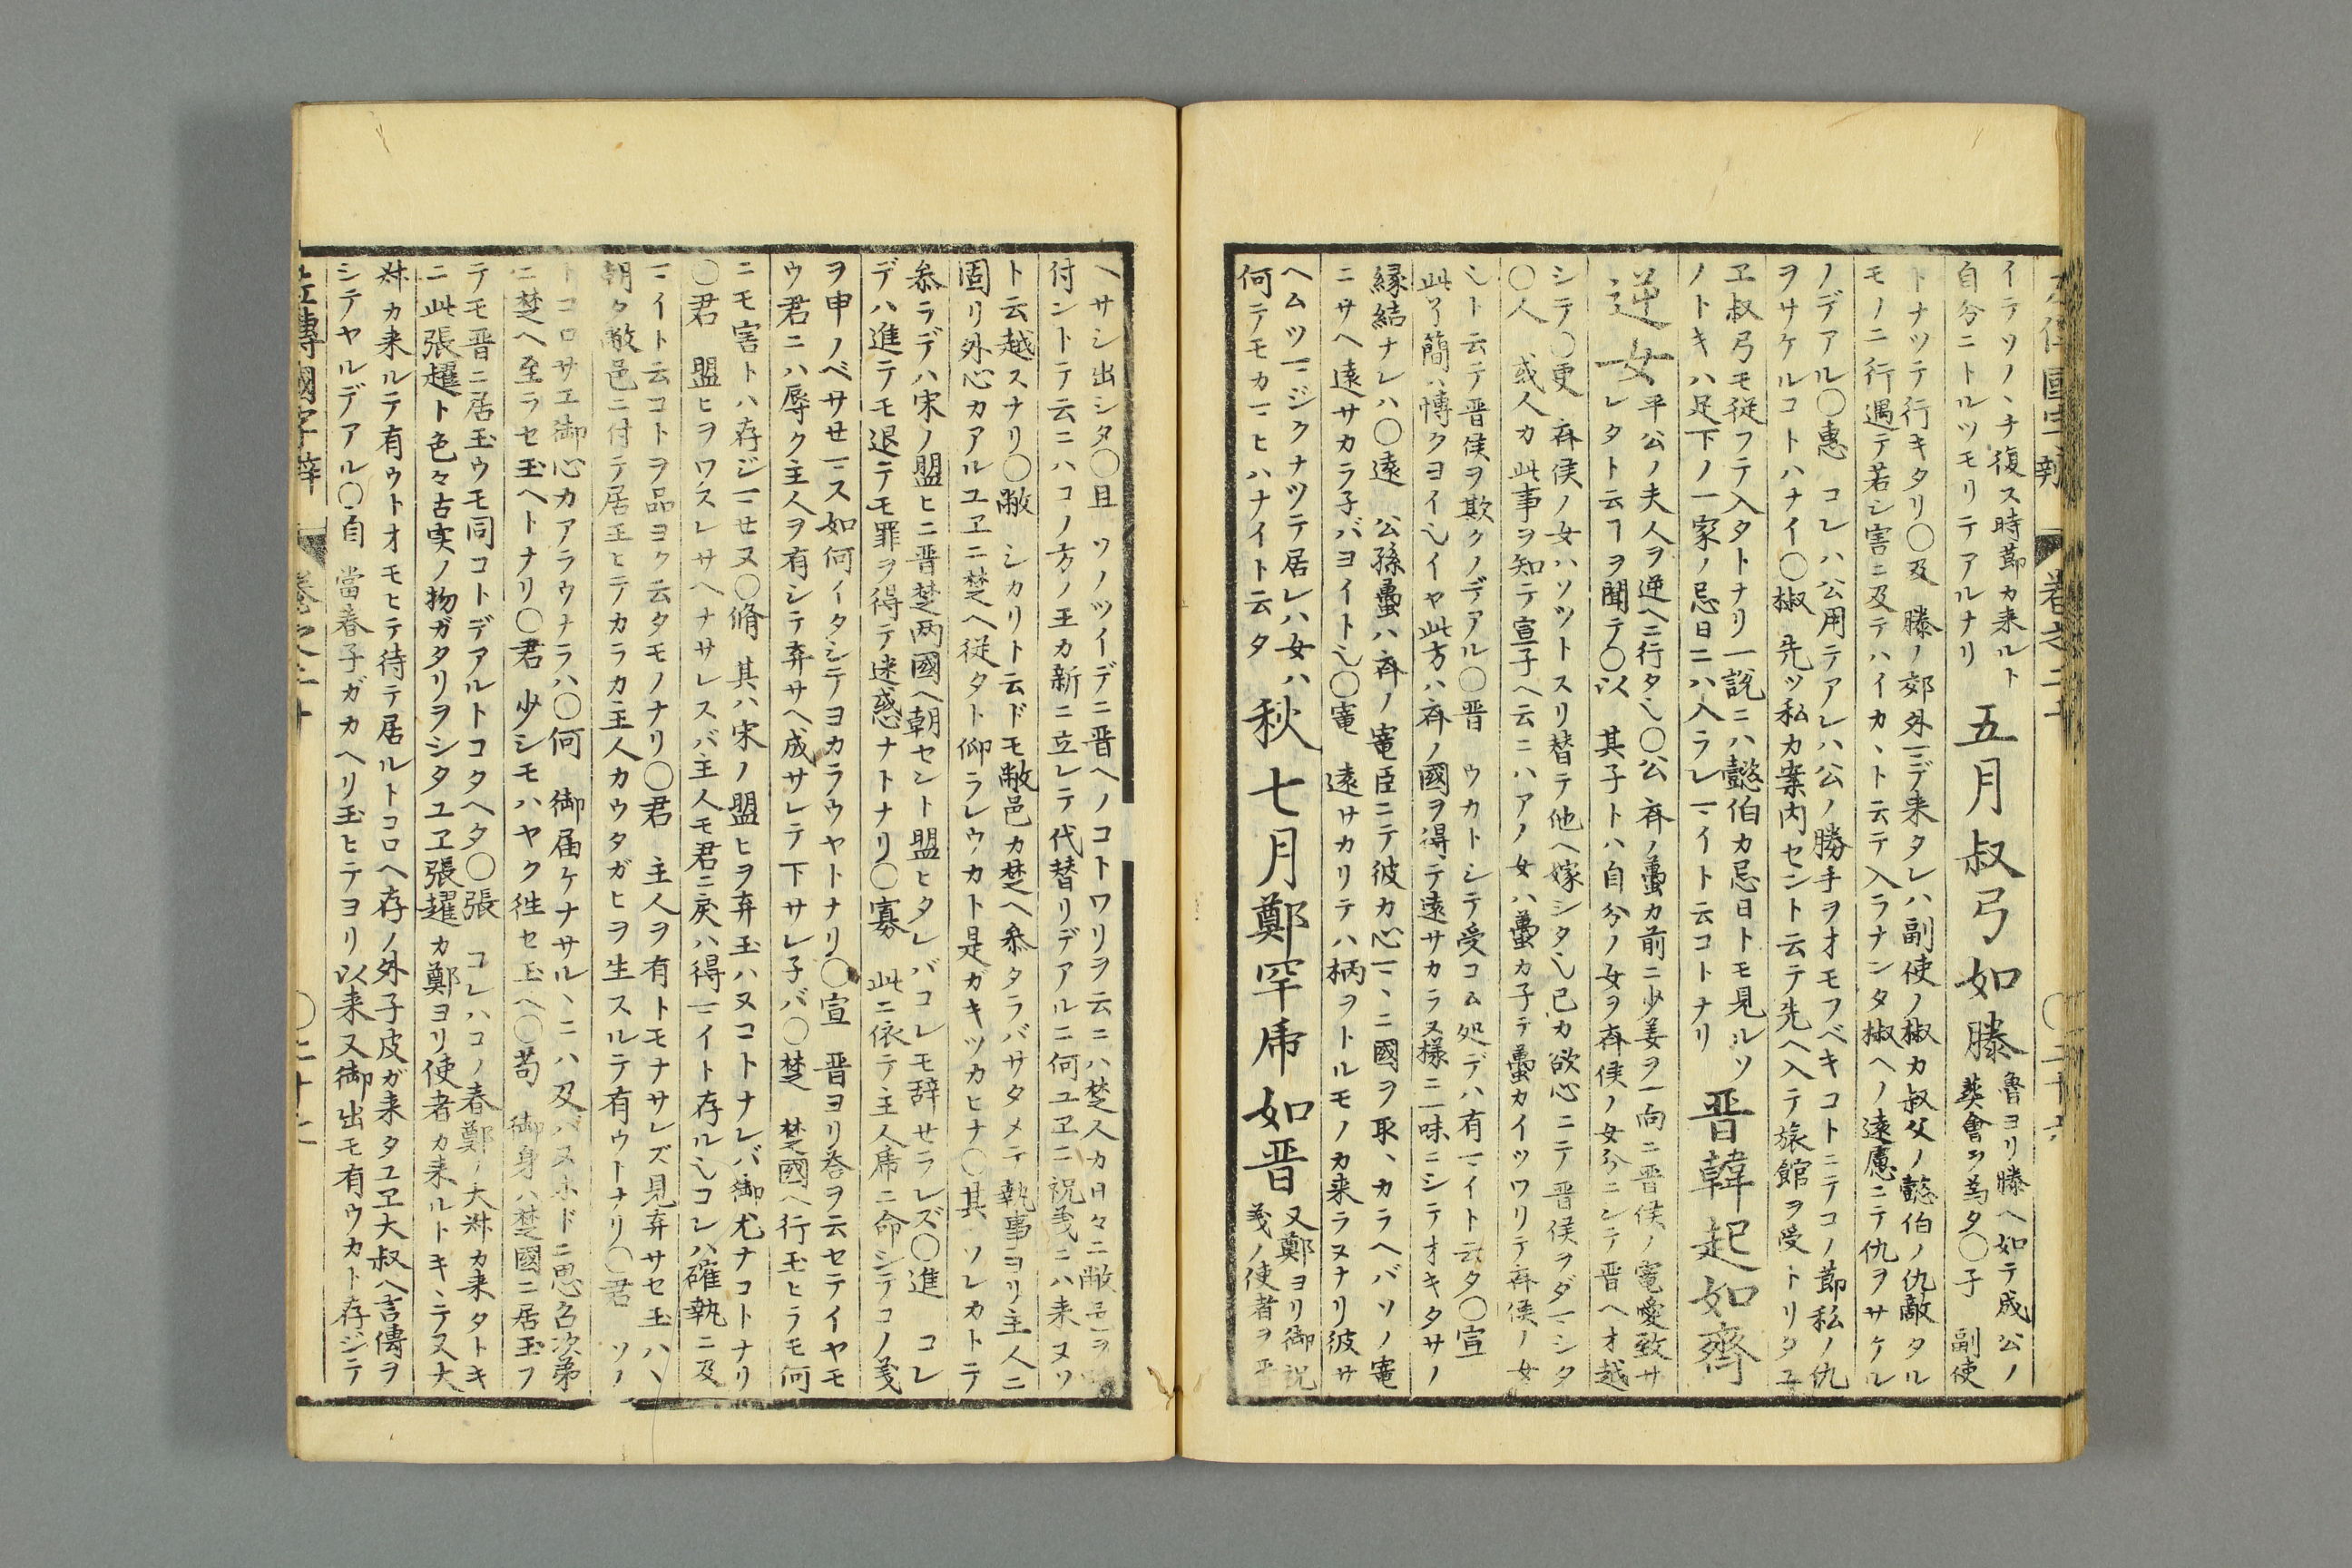 左傳國字辯 卷之二十 〇二十六
イテソノヽチ復ス時節カ来ルト
自分ニトルツモリテアルナリ
五月叔弓如滕
魯ヨリ滕ヘ如テ成公ノ
葬會ヲ為タ〇子 副使
トナツテ行キタリ〇及 滕ノ郊外マデ来タレハ副使ノ椒カ叔父ノ懿伯ノ仇敵タル
モノニ行遇テ若シ害ニ及テハイカヽト云テ入ラナンタ椒ヘノ遠慮ニテ仇ヲサケル
ノデアル〇惠 コレハ公用テアレハ公ノ勝手ヲオモフベキコトニテコノ節私ノ仇
ヲサケルコトハナイ〇椒 先ツ私カ案内セント云テ先ヘ入テ旅館ヲ受トリタユ
ヱ叔弓モ従フテ入タトナリ一説ニハ懿伯カ忌日トモ見ルソ
ノトキハ足下ノ一家ノ忌日ニハ入ラレマイト云コトナリ
晋韓起如齊
逆女
平公ノ夫人ヲ逆ヘニ行タ〇公 斉ノ蠆カ前ニ少姜ヲ一向ニ晋侯ノ寵愛致サ
レタト云フヲ聞テ〇以 其子トハ自分ノ女ヲ斉侯ノ女分ニシテ晋ヘオ越
シテ〇更 斉侯ノ女ハソツトスリ替テ他ヘ嫁シタ也己カ欲心ニテ晋侯ヲダマシタ
〇人 或人カ此事ヲ知テ宣子ヘ云ニハアノ女ハ蠆カ子テ蠆カイツワリテ斉侯ノ女
也ト云テ晋侯ヲ欺クノデアル〇晋 ウカトシテ受コム処デハ有マイト云タ〇宣
此了簡ハ慱クヨイ也イヤ此方ハ斉ノ國ヲ得テ遠サカラヌ様ニ一味ニシテオキタサノ
縁結ナレハ〇遠 公孫蠆ハ斉ノ寵臣ニテ彼カ心マヽニ國ヲ取ヽカラヘバソノ寵
ニサヘ遠サカラ子バヨイト也〇寵 遠サカリテハ柄ヲトルモノカ来ラヌナリ彼サ
ヘムツマジクナツテ居レハ女ハ
何テモカマヒハナイト云タ
秋七月鄭罕虎如晋
又鄭ヨリ御祝
義ノ使者ヲ
ヘサシ出シタ〇且 ソノツイデニ晋ヘノコトワリヲ云ニハ楚人カ日々ニ敝邑ヲ
付ントテ云ニハコノ方ノ王カ新ニ立レテ代替リデアルニ何ユヱニ祝義ニハ来ヌソ
ト云越スナリ〇敝 シカリト云ドモ敝邑カ楚ヘ叅タラバサタメテ執事ヨリ主人ニ
固リ外心カアルユヱニ楚ヘ従タト仰ラレウカト是ガキツカヒナ〇其 ソレカトテ
叅ラデハ宋ノ盟ヒニ晋楚両國ヘ朝セント盟ヒタレバコレモ辞セラレズ〇進 コレ
デハ進テモ退テモ罪ヲ得テ迷惑ナトナリ〇寡 此ニ依テ主人虎ニ命シテコノ義
ヲ申ノベサセマス如何イタシテヨカラウヤトナリ〇宣 晋ヨリ答ヲ云セテイヤモ
ウ君ニハ辱ク主人ヲ有シテ弃サヘ成サレテ下サレ子バ〇楚 楚國ヘ行玉ヒラモ何
ニモ害トハ存ジマセヌ〇脩 其ハ宋ノ盟ヒヲ弃玉ハヌコトナレバ御尤ナコトナリ
〇君 盟ヒヲワスレサヘナサレスバ主人モ君ニ戻ハ得マイト存ル也コレハ確執ニ及
マイト云コトヲ品ヨク云タモノナリ〇君 主人ヲ有トモナサレズ見弃サセ玉ハヽ
朝タ敝邑ニ付テ居玉ヒテカラカ主人カウタガヒヲ生スルテ有ウトナリ〇君 ソノ
トコロサヱ御心カアラウナラハ〇何 御届ケナサルヽニハ及バヌホドニ思召次第
ニ楚ヘ至ラセ玉ヘトナリ〇君 少シモハヤク徃セ玉ヘ〇苟 御身ハ楚國ニ居玉フ
テモ晋ニ居玉ウモ同コトデアルトコタヘタ〇張 コレハコノ春鄭ノ大叔カ来タトキ
ニ此張趯ト色々古実ノ物ガタリヲシタユヱ張趯カ鄭ヨリ使者カ来ルトキヽテ又大
叔カ来ルテ有ウトオモヒテ待テ居ルトコロヘ存ノ外子皮ガ来タユヱ大叔ヘ言傳ヲ
シテヤルデアル〇自 當春子ガカヘリ玉ヒテヨリ以来又御出モ有ウカト存ジテ
左傳國字辯 卷之二十 〇二十七